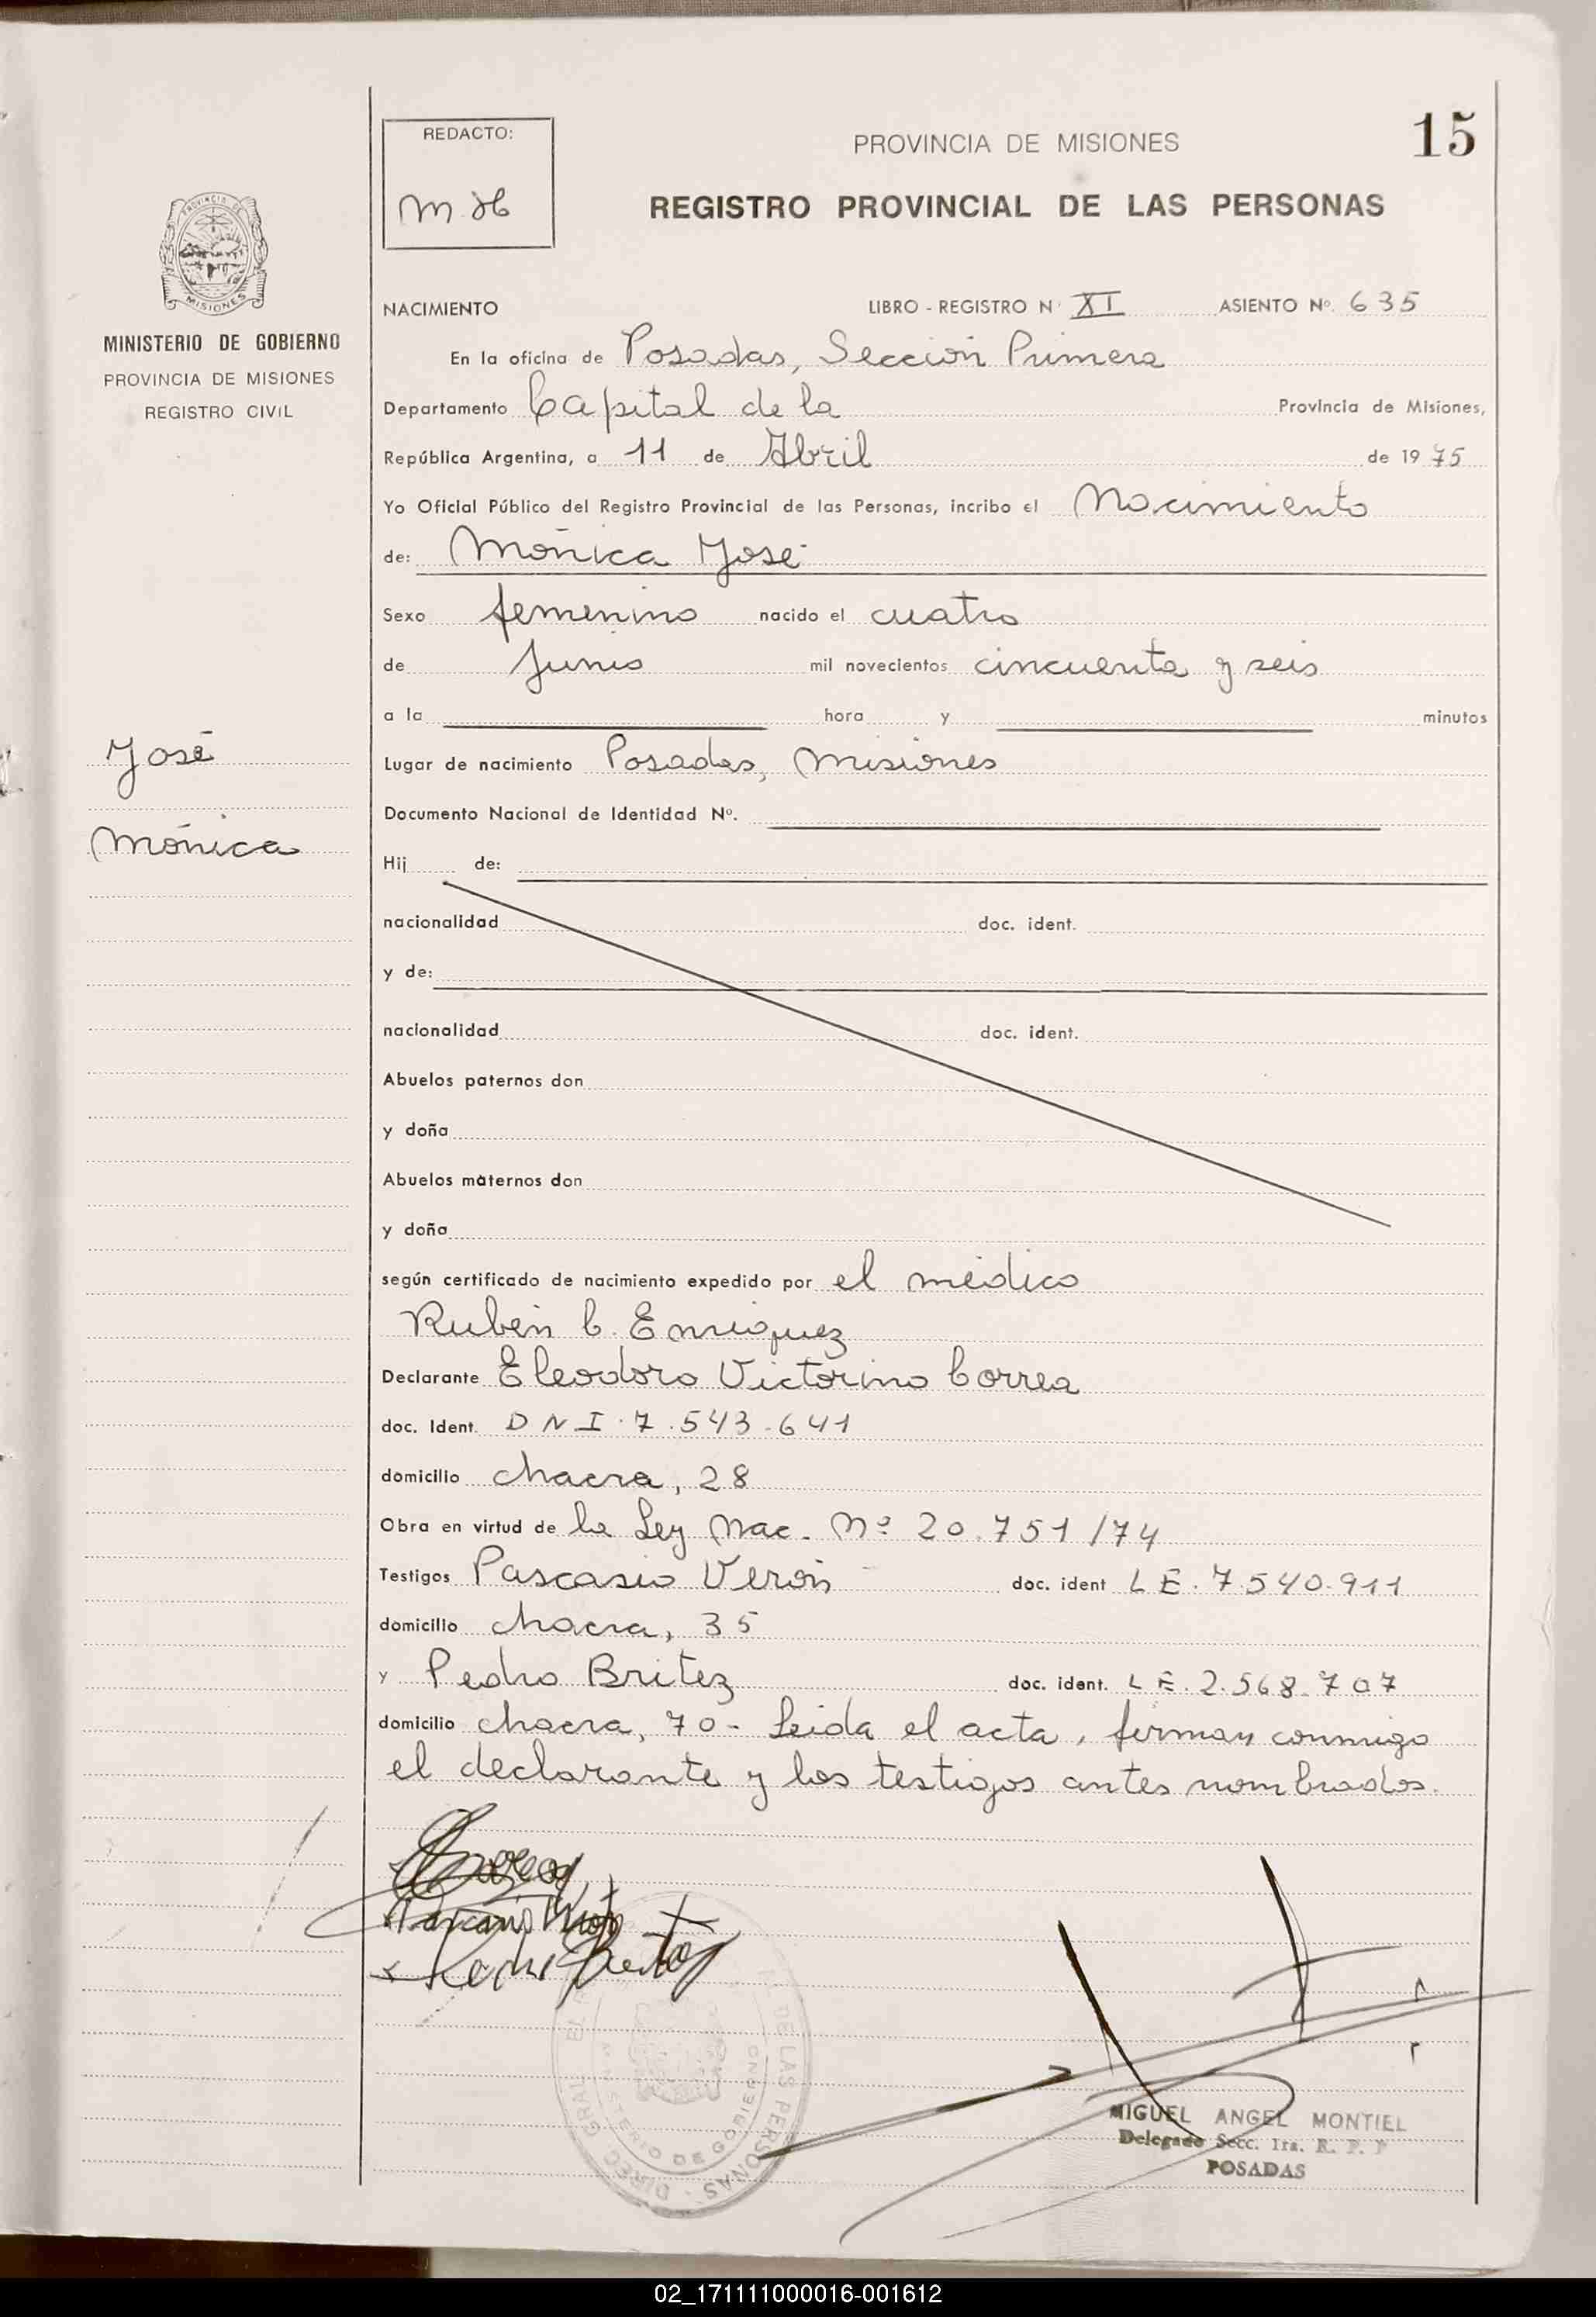 15
REDACTO:
PROVINCIA DE MISIONES
REGISTRO PROVINCIAL DE LAS PERSONAS
PROVINCIA DE
MISIONES
MINISTERIO DE GOBIERNO
PROVINCIA DE MISIONES
REGISTRO CIVIL
José
Mónica
NACIMIENTO LIBRO - REGISTRO N° XI ASIENTO Nº. 635
En la oficina de Posadas, Sección Primera
Departamento Capital de la Provincia de Misiones,
República Argentina, a 11 de Abril de 1975
Yo Oficial Público del Registro Provincial de las Personas, incribo el Nacimiento
de: Mónica José
Sexo femenino nacido el cuatro
de Junio mil novecientos cincuenta y seis
a la hora y minutos
Lugar de nacimiento Posadas, Misiones
Documento Nacional de Identidad Nº.
Hij de:
nacionalidad doc. ident.
y de:
nacionalidad doc. ident.
Abuelos paternos don
y doña
Abuelos maternos don
y doña
según certificado de nacimiento expedido por el médico
Rubén C. Enriquez
Declarante Eleodoro Victorino Correa
doc. Ident. DNI. 7.543.641
domicilio chacra, 28
Obra en virtud de la Ley Nac. Nº 20.751/74
Testigos Pascasio Verón doc. ident LE. 7.540.911
domicilio chacra, 35
y Pedro Britez doc. ident. LE. 2.568.707
domicilio chacra, 70- Leida el acta, firman conmigo
el declarante y los testigos antes nombrados.
DIREC. GRAL. DE LAS PERSONAS
MINISTERIO DE GOBIERNO
MIGUEL ANGEL MONTIEL
Delegado Secc. 1ra. R. P. P
POSADAS
02_171111000016-001612